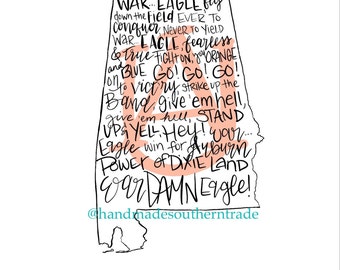 WAR... EAGLE fly
down the FIELD EVER TO
conquer NEVER TO YIELD
WAR EAGLE, fearless
& true FIGHT ON, you ORANGE
and BLUE GO! GO! GO!
On To Victory, STRIKE UP the
Band give 'em hell,
give 'em hell, STAND
UP & YELL, Hey! war...
Eagle win for Auburn
POWER OF DIXIE LAND
War DAMN Eagle!
@handmadesoutherntrade